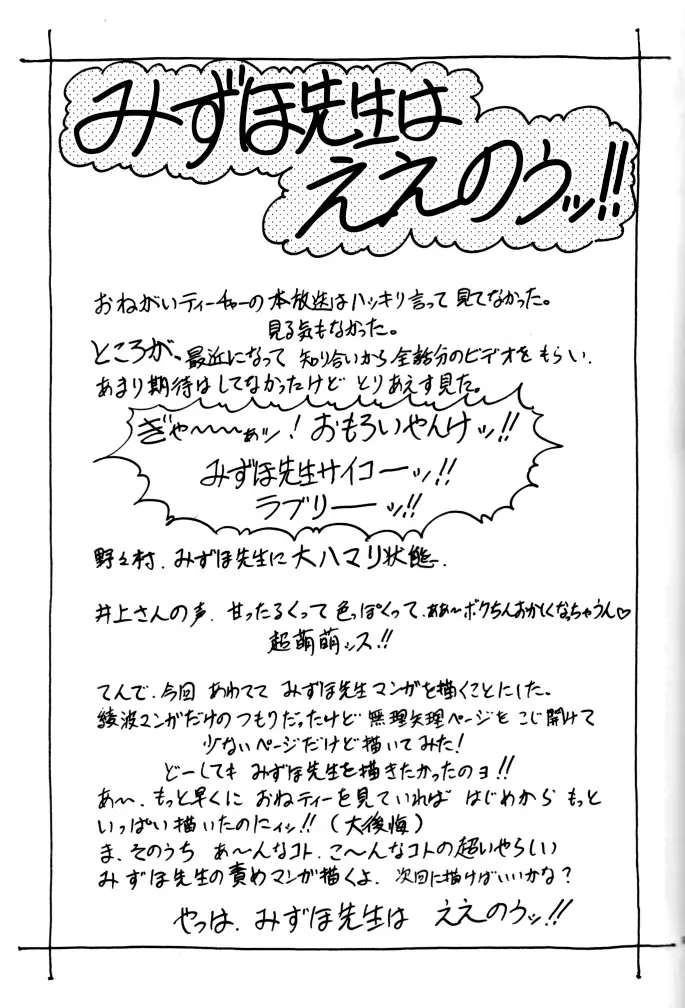 みずほ先生は
ええのうッ!!
おねがいティーチャーの本放送はハッキリ言って見てなかった。
見る気もなかった。
ところが、最近になって 知り合いから全話分のビデオをもらい、
あまり期待はしてなかったけど とりあえず見た。
ぎゃ〜〜〜ぁッ! おもろいやんけッ!!
みずほ先生サイコーーッ!!
ラブリーーーッ!!
野々村、みずほ先生に大ハマリ状態。
井上さんの声、甘ったるくって色っぽくって、ああ〜ボクちんおかしくなっちゃうん♡
超萌萌ッス!!
てんで、今回 あわてて みずほ先生マンガを描くことにした。
綾波マンガだけのつもりだったけど 無理矢理ページを こじ開けて
少ないページだけど描いてみた!
どーしても みずほ先生を描きたかったのョ!!
あ〜、もっと早くに おねティーを見ていれば はじめから もっと
いっぱい描いたのにィッ!! (大後悔)
ま、そのうち あ〜んなコト、こ〜んなコトの超いやらしい
みずほ先生の責めマンガ描くよ、次回に描けばいいかな?
やっは、みずほ先生は ええのうッ!!